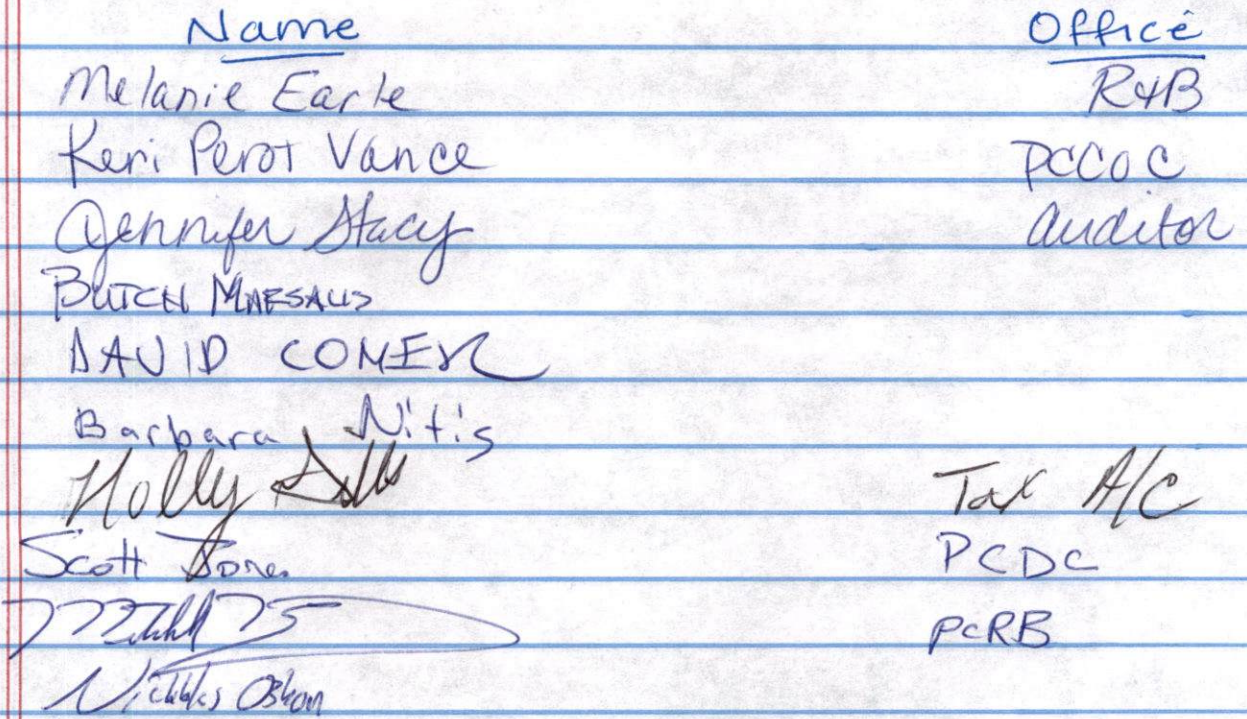 Name Office
Melanie Earle R&B
Keri Perot Vance PCCOC
Jennifer Stacy Auditor
BUTCH
DAVID COMER
Barbara Nitis
Holly Tax A/C
Scott Jones PCDC
PCRB